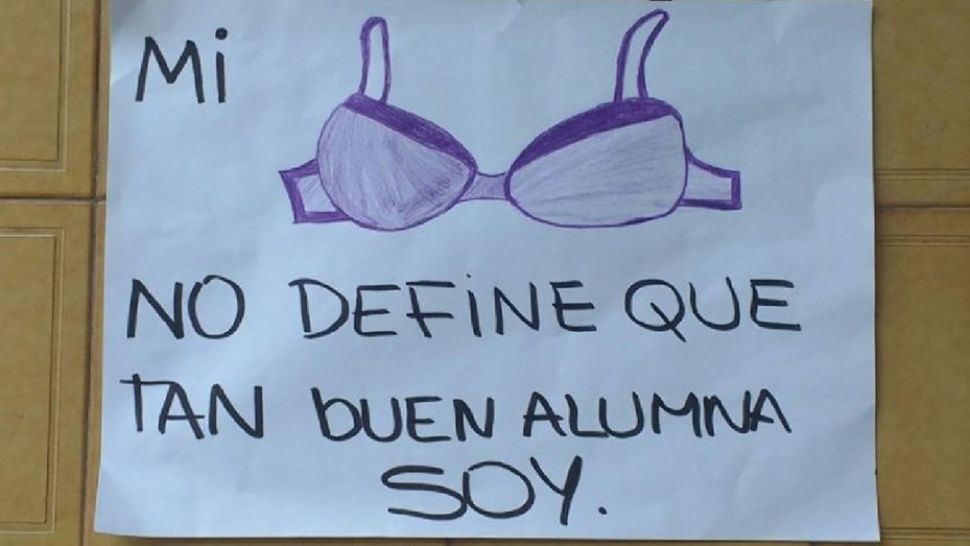 Mi
NO DEFiNE QUE
TAN bUEN ALUMNA
SOY.